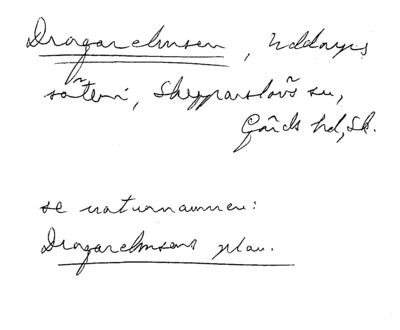 Dragarelmsen, Uddarps
säteri, Skepparslövs sn,
Gärds hd, Sk.
se naturnamnen:
Dragarelmsens plan.